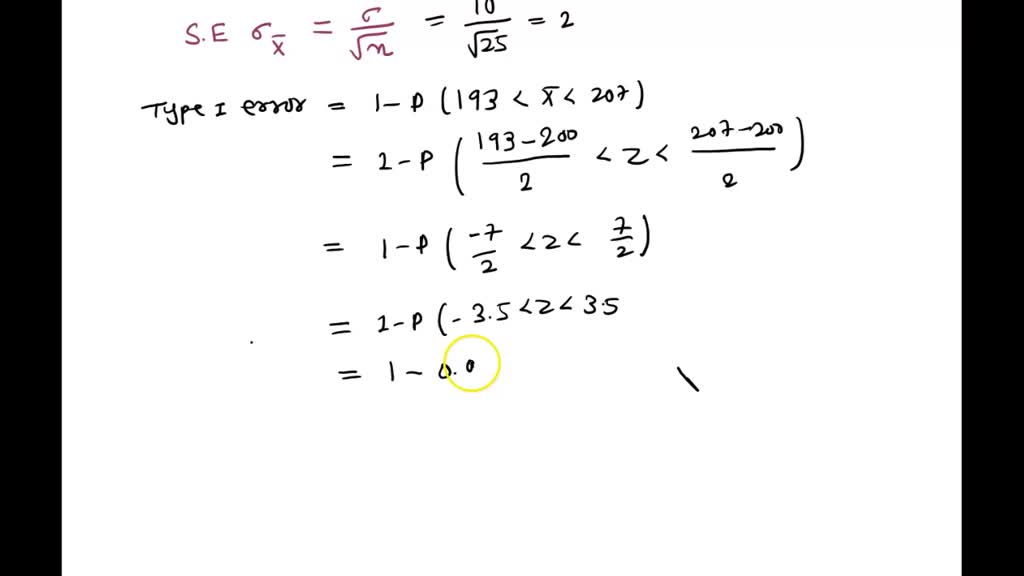 S.E σ_x̄ = σ/√n = 10/√25 = 2
Type I error = 1 - P (193 < x̄ < 207)
= 1 - P ( (193 - 200)/2 < z < (207 - 200)/2 )
= 1 - P ( -7/2 < z < 7/2 )
= 1 - P ( - 3.5 < z < 3.5
= 1 - 0.0